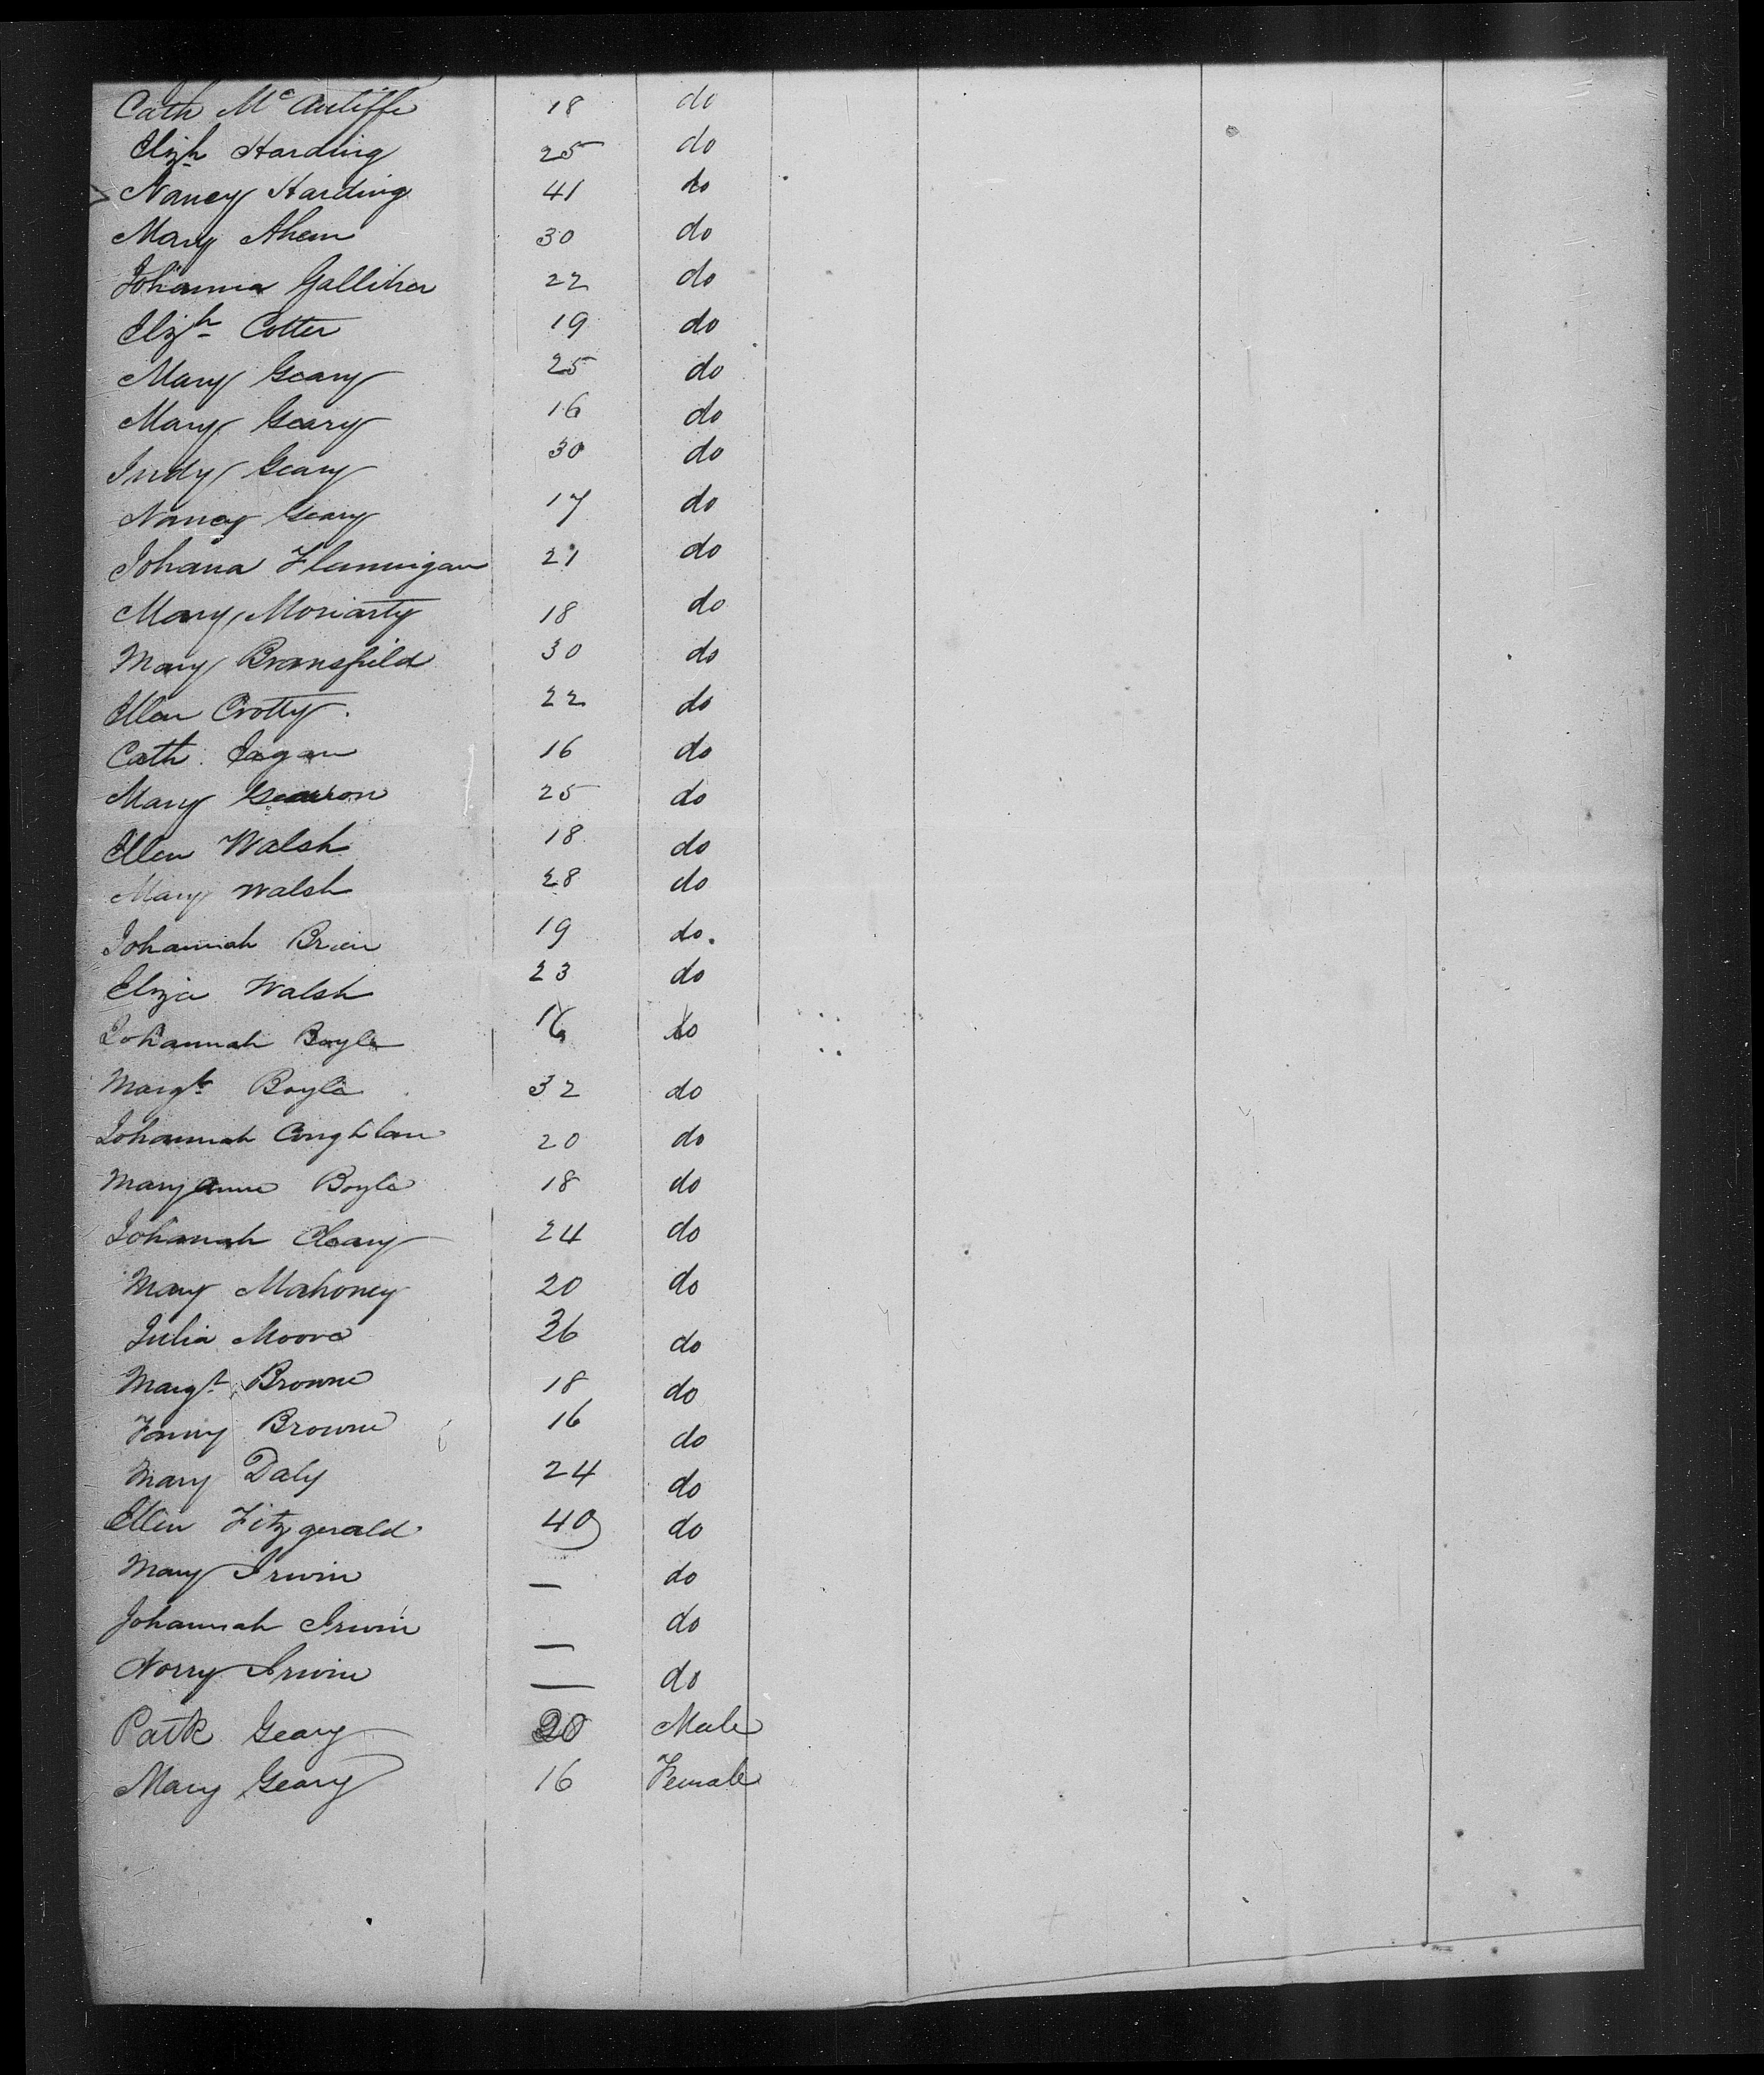 Cath McAuliffe 18 do
Elizh Harding 25 do
Nancy Harding 41 do
Mary Ahern 30 do
Johanna Galliher 22 do
Elizh Cotter 19 do
Mary Geary 25 do
Mary Geary 16 do
Judy Geary 30 do
Nancy Geary 17 do
Johana Flannigan 21 do
Mary Moriarty 18 do
Mary Bransfield 30 do
Ellen Crotty 22 do
Cath. 16 do
Mary 25 do
Ellen Walsh 18 do
Mary Walsh 28 do
Johannah Brien 19 do.
Eliza Walsh 23 do
Johannah Boyle 16 do
Margt Boyle 32 do
Johannah Coughlan 20 do
Maryanne Boyle 18 do
Johanah Cleary 24 do
Mary Mahoney 20 do
Julia Moore do
Margt Browne 18 do
Fanny Browne 16 do
Mary Daly 24 do
Ellen Fitzgerald 40 do
Mary Irwin — do
Johannah Irwin — do
Norry Irwin — do
Patk Geary 20 Male
Mary Geary 16 Female